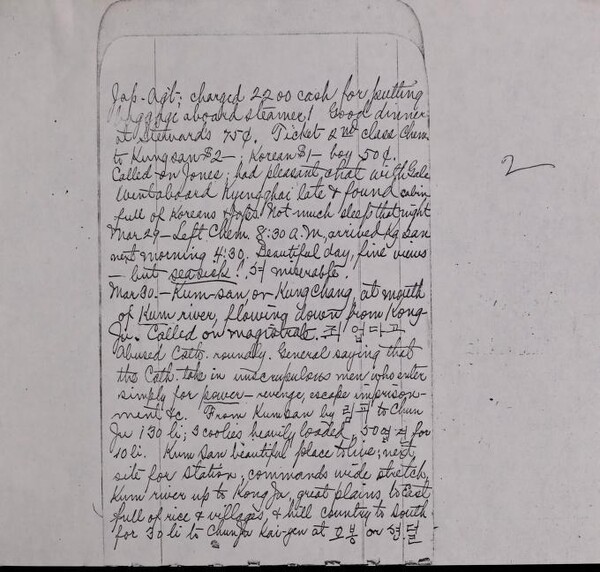 Jap. Agt; charged 2200 cash for putting
baggage aboard steamer! Good dinner
at Stewards 75¢. Ticket 2nd class Chem.
to Kungsan $2—; Korean $1— boy 50¢.
Called on Jones; had pleasant chat with Gale
Went aboard Kyengghai late & found cabin
full of Koreans & Japs. Not much sleep that night
Mar 29— Left Chem. 8:30 A.M., arrived Kg San
next morning 4:30. Beautiful day, fine views
— but seasick! miserable.
Mar 30.— Kum-san, or Kung Chang, at mouth
of Kum river, flowing down from Kong
Ju. Called on magistrate. 죄 업다고
Abused Cath. roundly. General saying that
the Cath. take in unscrupulous men who enter
simply for power— revenge, escape imprison-
ment &c. From Kumsan by 림피 to Chun
Ju 130 li; 3 coolies heavily loaded, 50 for
10 li. Kum San beautiful place to live; next
site for station, commands wide stretch
Kum river up to Kong Ju, great plains to East
full of rice & villages, & hill country to South
for 30 li to Chunju Kai-yen at on
2